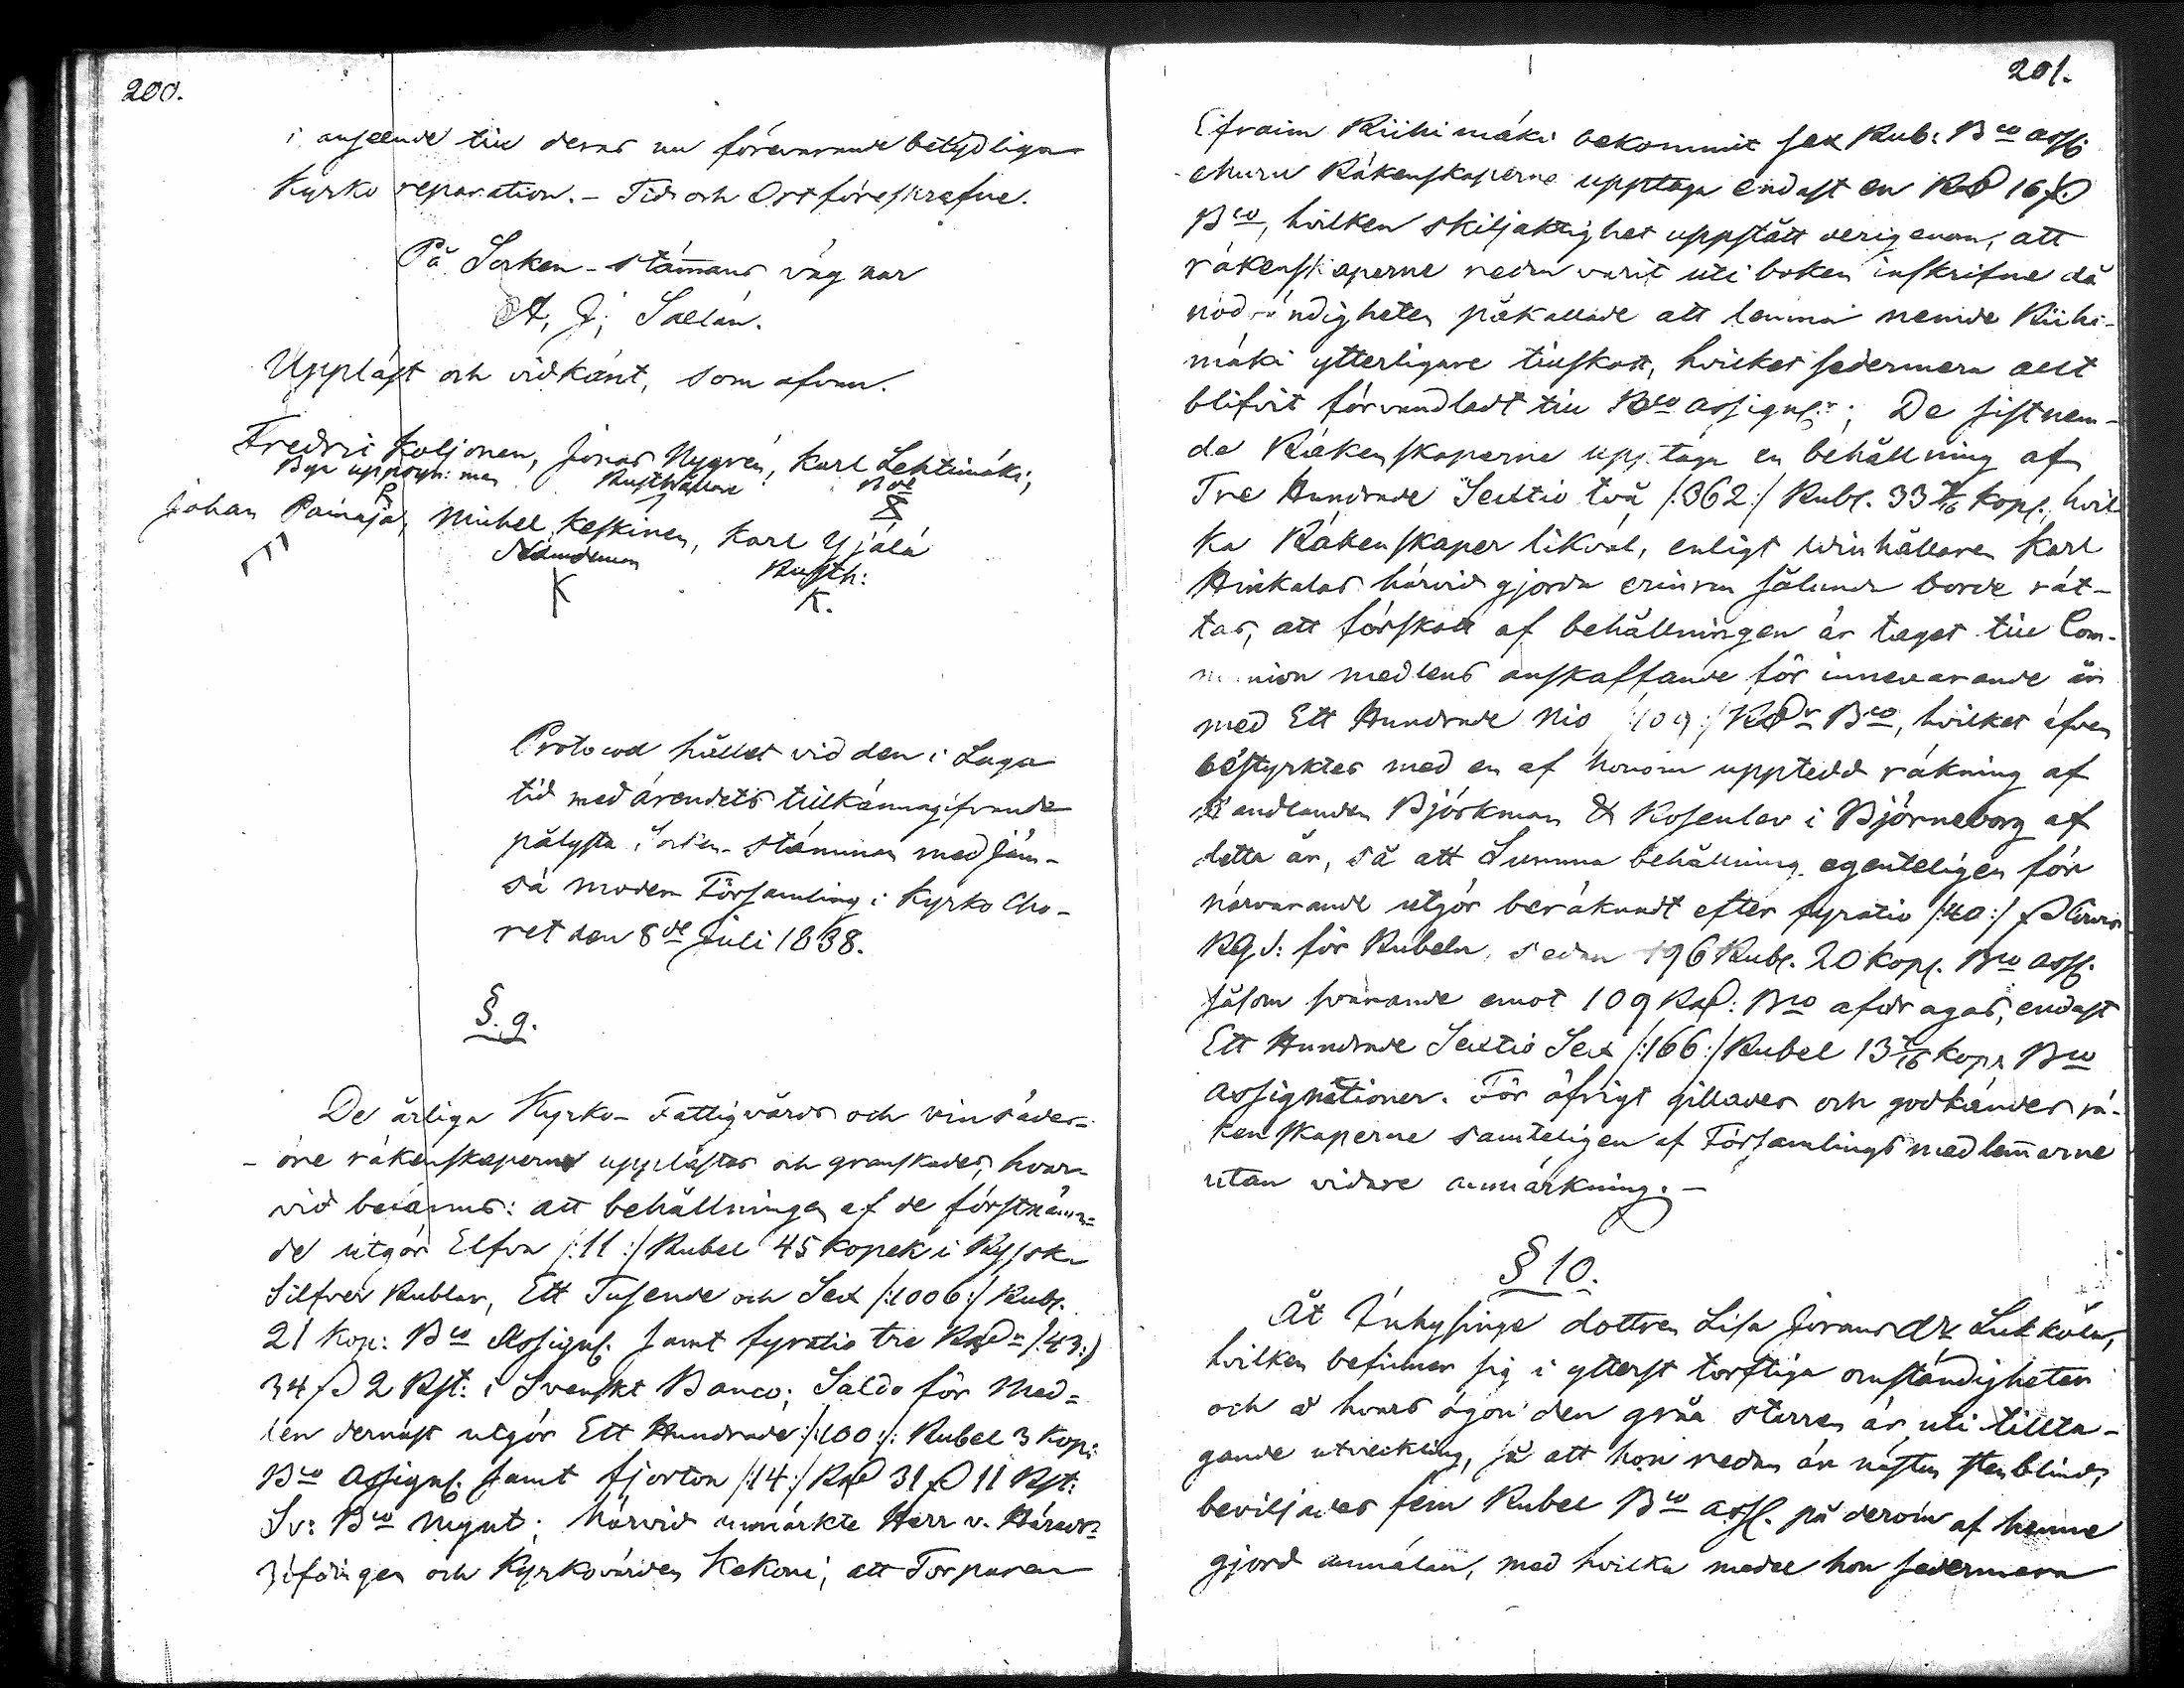 200.
i anseende till deras nu förewarande betydliga
Kyrko reparation. – Tid och Ort föreskrefne.
På Socken-stämans vägnar
A. J. Saelan.
Uppläst och vidkänt, som ofvan.
Fredric Koljonen, Jonas Nygrén, Karl Lehtimäki,
Bya uppsyn: man Rusthållare
Johan Painaja, Michel Keskinen, Karl Yjälä
Nämdeman Rusth:
K K.
Protocoll hållet vid den i Laga
tid med ärendets tillkännagifvande
pålysta Socken-stämman med Jäm-
sä moder Församling i Kyrko Cho-
ret den 8de Juli 1838.
§. 9.
De årliga Kyrko- Fattigvårds och vinsädes-
-öre räkenskaperne upplästes och granskades, hvar-
vid befanns: att behållningen af de förstnäm-
de utgör Elfva /:11:/ Rubel 45 kopek i Ryska
Silfver Rublar, Ett Tusende och Sex /:1006:/ Rubl.
21 Kop: Bco Assign. samt fyratio tre RDr /:43:/
34 ß 2 Rst: i Svenskt Banco; Saldo för Med=
len dernäst utgör Ett Hundrade /:100:/: Rubel 3 Kop:
Bco Assign. samt fjorton /:14:/ RD 31 ß 11 Rst:
Sv: Bco Mynt; Härvid anmärkte Herr v. Härads-
höfdingen och Kyrkovärden Kekoni, att Torparen
201.
Efraim Riihimäki bekommit sex Rub: Bco ass:
ehuru Räkenskaperne upptaga endast en RD 16 ß.
Bco, hvilken skiljaktighet uppstått derigenom, att
räkenskaperne redan varit uti boken inskrifne då
nödvändigheten påkallade att lemna nemde Riihi-
mäki ytterligare tillskott, hvilket sedermera allt
blifvit förvandladt till Bco assign:r; De sistnem-
da Räkenskaperne upptaga en behållning af
Tre Hundrade Sextio två /:362:/ Rubl. 33 kop., hvil-
ka Räkenskaper likväl, enligt Karl
Hinkalas härvid gjorda erinran sålunda borde rät-
tas, att förskott af behållningen är taget till Com-
munion medlens anskaffande för innevarande år
med Ett Hundrade Nio /:109:/ RDr Bco, hvilket äfven
bestyrktes med en af honom uppted räkning af
Handlanden Björkman & Rosenlew i Björneborg af
detta år, så att Summa behållning egenteligen för
närvarande utgör beräknadt efter fyratio /:40:/ ß
Rgs: för Rubeln, sedan 196 Rubl. 20 kop. Bco ass.
såsom svarande emot 109 RD: Bco afdragas, endast
Ett Hundrade Sextio Sex /:166:/ Rubel 13 kop. Bco
assignationer. För öfrigt gillades och godkändes rä-
kenskaperne samteligen af Församlings medlemarne
utan vidare anmärkning. –
§ 10.
Åt Inhysinge dottren Lisa Joransdr Lukkola,
hvilken befinner sig i ytterst torftiga omständigheter
och å hvars ögon den gråa starren är uti tillta-
gande utveckling, så att hon redan är nästan stenblind,
beviljades fem Rubel Bco ass. på derom af henne
gjord anmälan, med hvilka medel hon sedermera